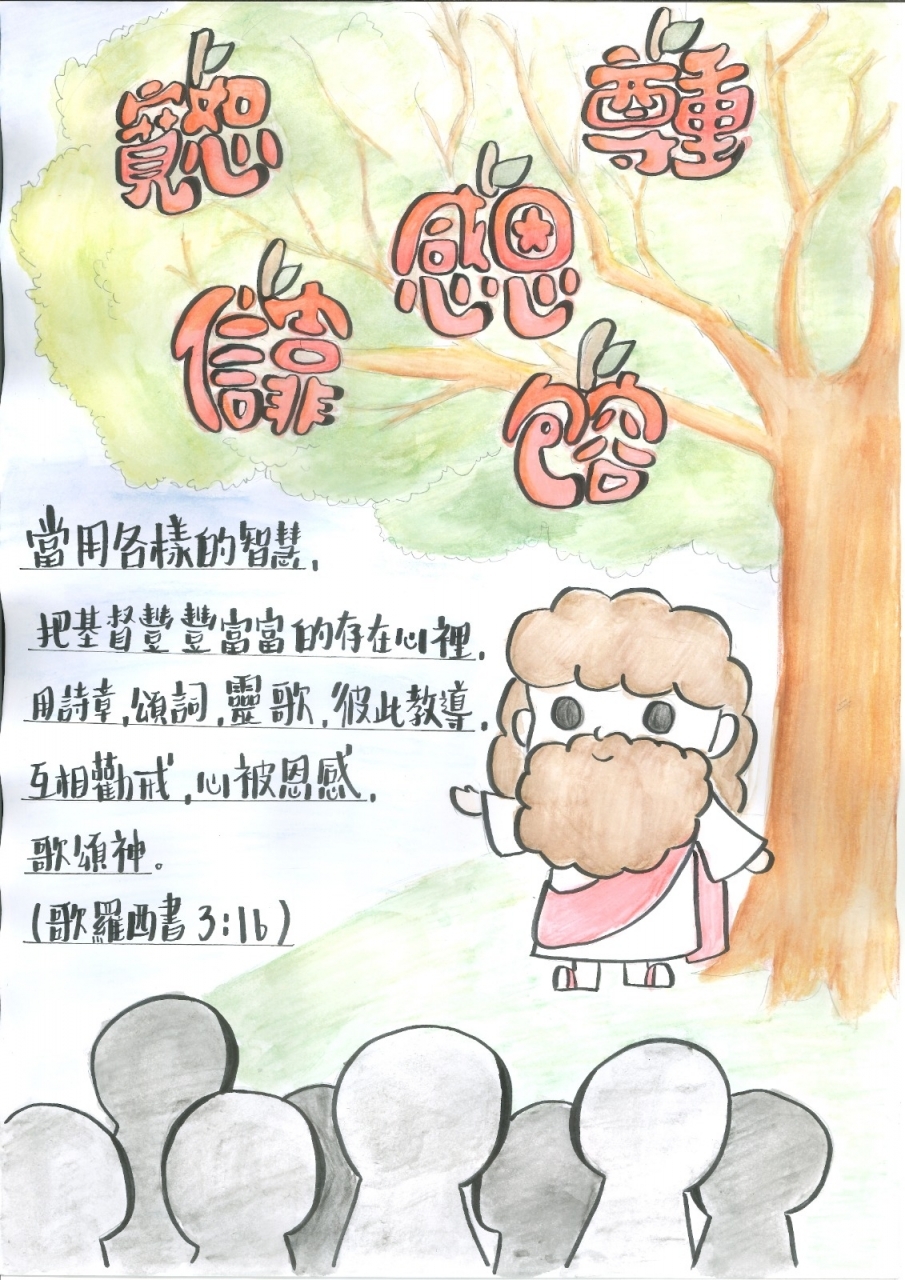 寬恕
尊重
感恩
信靠
包容
當用各樣的智慧，
把基督豐豐富富的存在心裡，
用詩章，頌詞，靈歌，彼此教導，
互相勸戒，心被恩感，
歌頌神。
(歌羅西書 3:16)